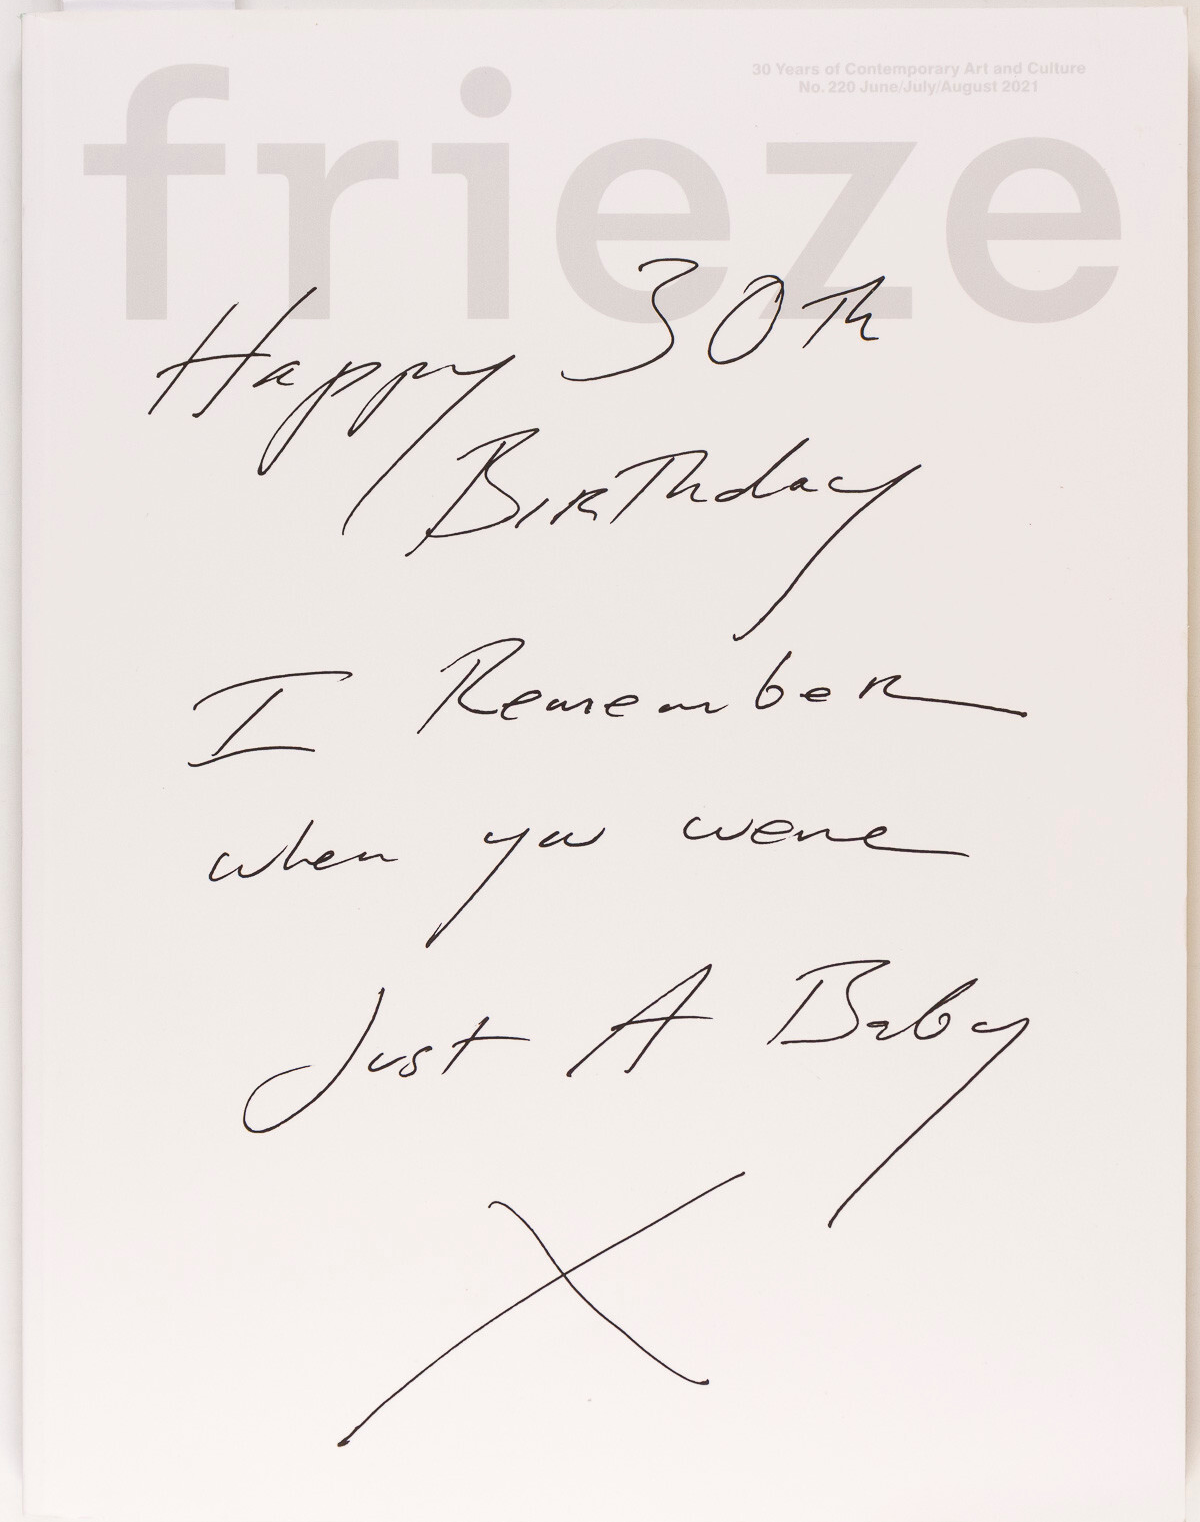 frieze
30 Years of Contemporary Art and Culture
No. 220 June/July/August 2021
Happy 30Th
BIRThday
I Remember
when you were
Just A Baby
X